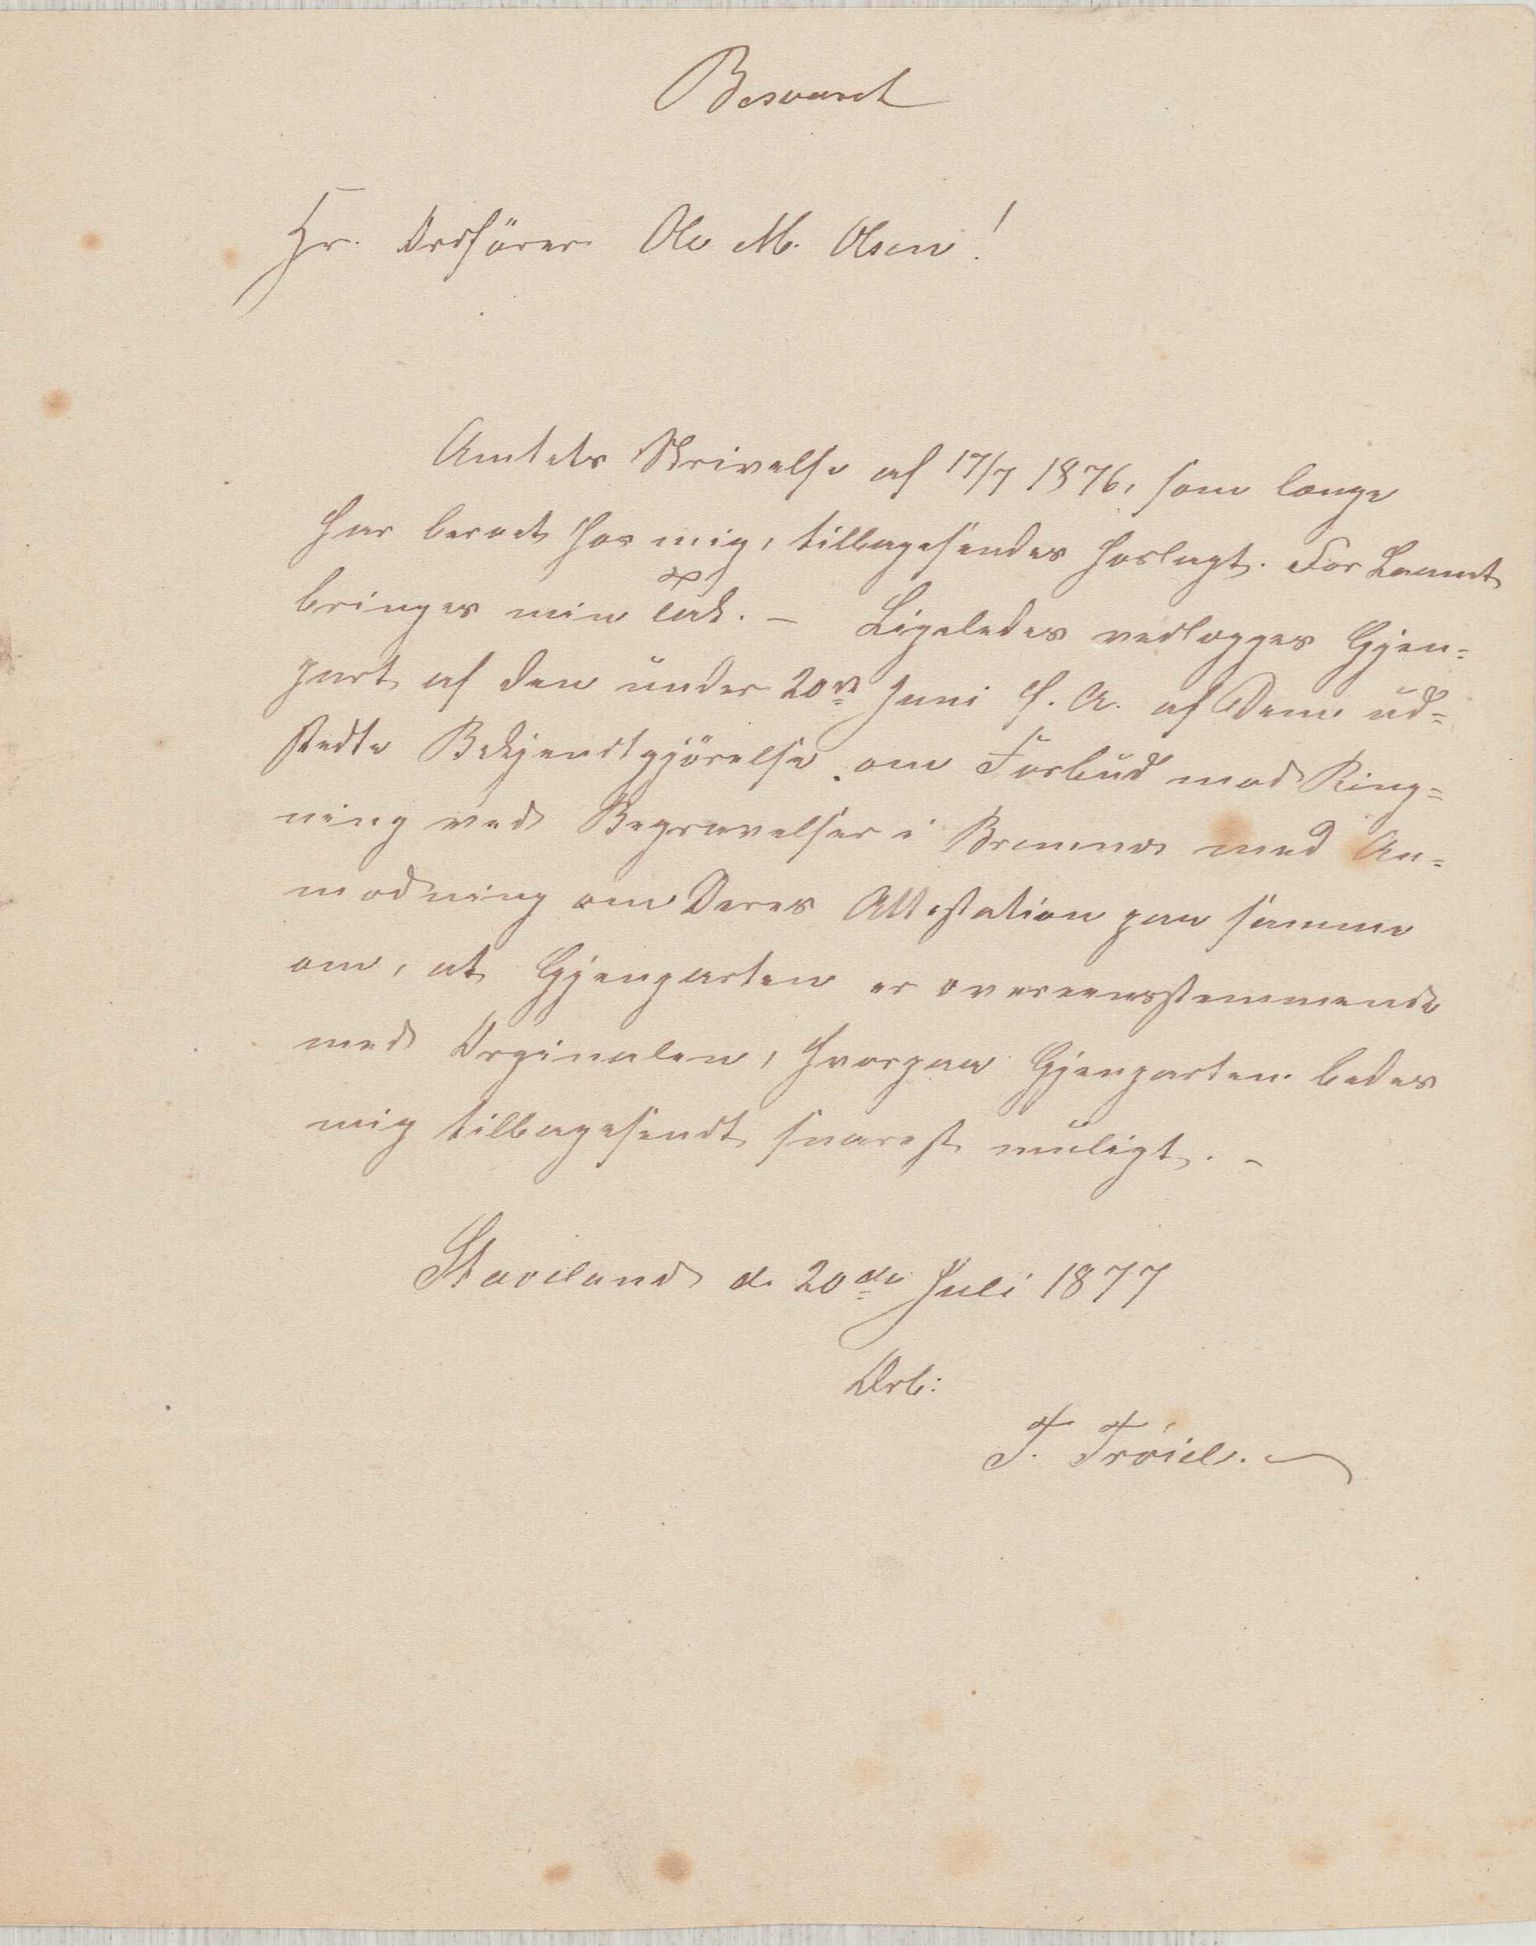 Besvaret
Hr. Ordförer Ole M. Olsen!
Amtets Skrivelse af 17/7 1876, som længe
har beroet hos mig, tilbagesendes hoslagt. For Laanet
bringes min Tak. – Ligeledes vedlægges Gjen=
part af den under 20de Juni d. A. af Dem ud=
stedte Bekjendtgjörelse om Forbud mod Ring=
ning ved Begravelser i Bremnes med An=
modning om Deres Attestation paa samme
om, at Gjenparten er overeensstemmende
med Orginalen, hvorpaa Gjenparten bedes
mig tilbagesendt snarest muligt. –
Staveland d. 20de Juli 1877
Ærb:
T. Tröie